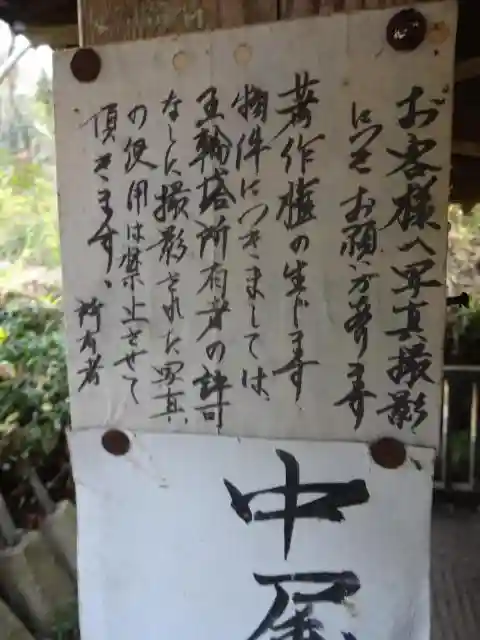 お客様へ写真撮影
につきお願い乃参ります
著作権の生じます
物件につきましては、
五輪塔所有者の許可
なしに撮影された写真
の使用は禁止させて
頂きます、
所有者
中尾